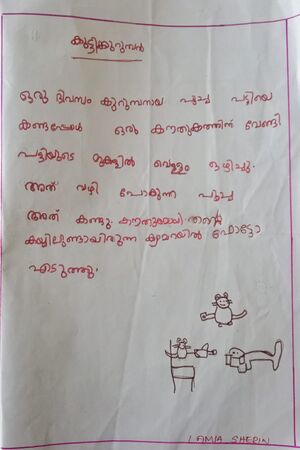 കുട്ടിക്കുറുമ്പൻ
ഒരു ദിവസം കുറുമ്പനായ പൂച്ച പട്ടിയെ
കണ്ടപ്പോൾ ഒരു കൗതുകത്തിന് വേണ്ടി
പട്ടിയുടെ മുകളിൽ വെള്ളം ഒഴിച്ചു.
അത് വഴി പോകുന്ന പൂച്ച
അത് കണ്ടു. തന്റെ
കയ്യിലുണ്ടായിരുന്ന ക്യാമറയിൽ ഫോട്ടോ
എടുത്തു.
LAMIA SHERIN